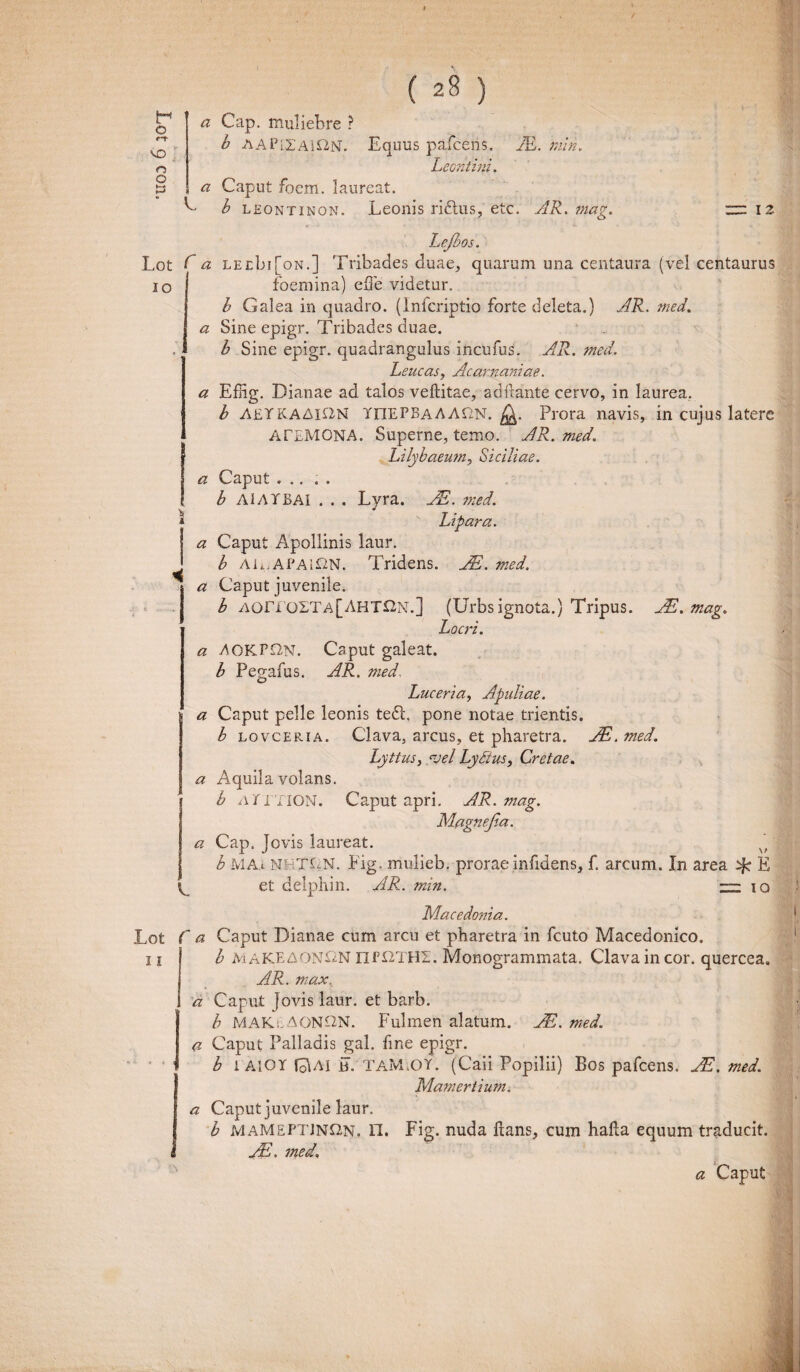 ( 28 )
Lot 9 con.
a Cap. muliebre ?
b ΛΑΡΙΣΑΙΩΝ. Equus paſcens. Æ. min.
Leontini.
a Caput foem. laureat.
b LEONTINON. Leonis rictus, etc. AR. mag. = 12
Leſbos.
Lot 10
a [ON.] Tribades duae, quarum una centaura (vel centaurus
foemina) eſſe videtur.
b Galea in quadro. (Inſcriptio forte deleta.) AR. med.
a Sine epigr. Tribades duae.
b Sine epigr. quadrangulus incuſus. AR. med.
Leucas, Acarnaniae.
a Effig. Dianae ad talos veſtitae, adſtante cervo, in laurea.
b ΛΕΥΚΑΔΙΩΝ ΥΠΕΡΒΑΛΛΩΝ. Prora navis, in cujus latere
ΑΓΕΜΟΝΑ. Superne, temo. AR. med.
Lilybaeum, Siciliae.
a Caput . . . . .
b ΛΙΛΥΒΑΙ . . . Lyra. Æ. med.
Lipara.
a Caput Apollinis laur.
b ΛΙΠΑΡΑΙΩΝ. Tridens. Æ. med.
a Caput juvenile.
b ΛΟΓΓΟΣΤΑ[ΛΗΤΩΝ.] (Urbs ignota.) Tripus. Æ. mag.
Locri.
a ΛΟΚΡΩΝ. Caput galeat.
b Pegaſus. AR. med.
Luceria, Apuliae.
a Caput pelle leonis tect. pone notae trientis.
b LOVCERIA. Clava, arcus, et pharetra. Æ. med.
Lyttus, vel Lyctus, Cretae.
a Aquila volans.
b ΛΥΤΤΙΟΝ. Caput apri. AR. mag.
Magneſia.
a Cap. Jovis laureat.
b ΜΑΓΝΗΤΩΝ. Fig. mulieb. prorae inſidens, ſ. arcum. In area E
et delphin. AR. min. = 10
Macedonia.
Lot 11
a Caput Dianae cum arcu et pharetra in ſcuto Macedonico.
b ΜΑΚΕΔΟΝΩΝ ΠΡΩΤΗΣ. Monogrammata. Clava in cor. quercea.
AR. max.
a Caput Jovis laur. et barb.
b ΜΑΚΕΔΟΝΩΝ. Fulmen alatum. Æ. med.
a Caput Palladis gal. ſine epigr.
b ΓΑΙΟΥ ΤΑΜΙΟΥ. (Caii Popilii) Bos paſcens. Æ. med.
Mamertium.
a Caput juvenile laur.
b ΜΑΜΕΡΤΙΝΩΝ. Π. Fig. nuda ſtans, cum haſta equum traducit.
Æ. med.
a Caput